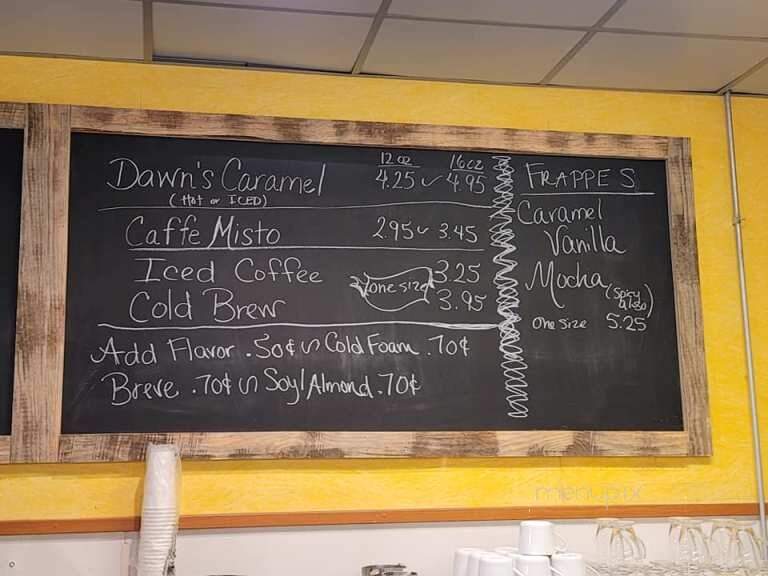 12 oz 16 oz
Dawn's Caramel 4.25 ~ 4.95
(Hot or ICED)
Caffe Misto 2.95 ~ 3.45
Iced Coffee 3.25
one size
Cold Brew 3.95
Add Flavor .50¢ ~ Cold Foam .70¢
Breve .70¢ ~ Soy/Almond .70¢
FRAPPES
Caramel
Vanilla
Mocha
(Spicy also)
one size 5.25
menupix